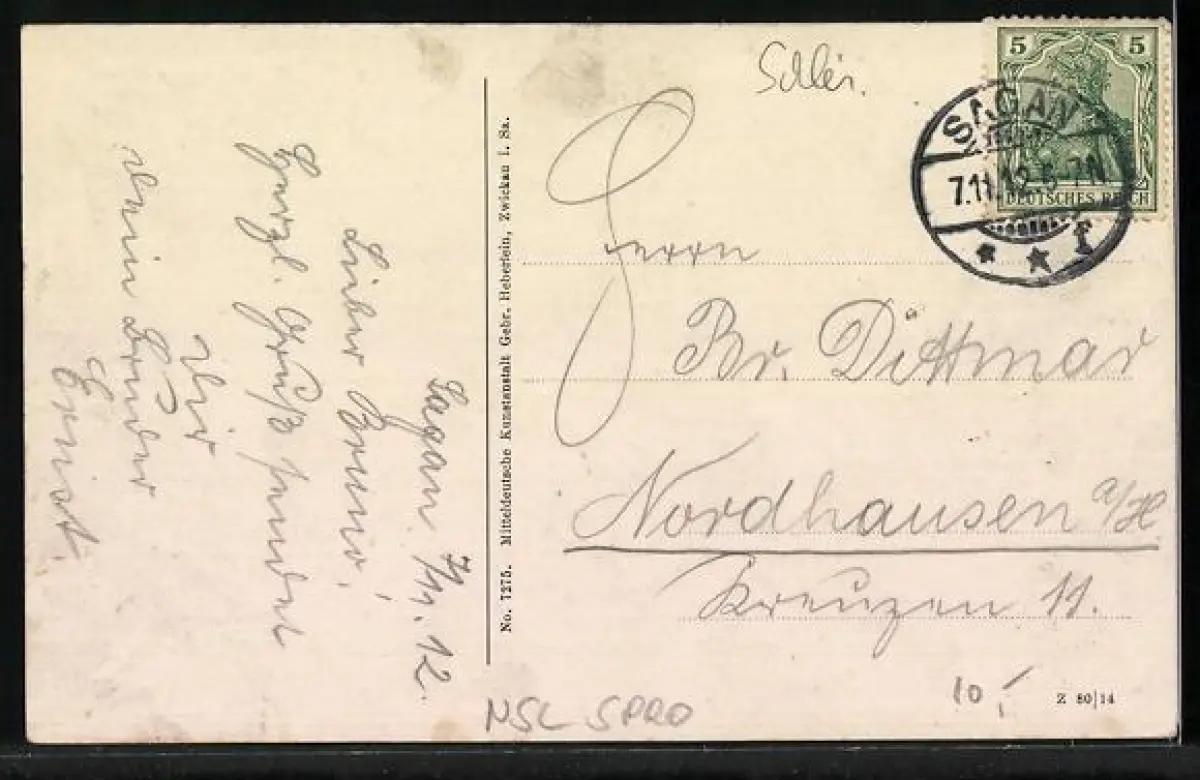 Sagan 7/11. 12.
Lieber Bruno,
Herzl. Gruß sendet
dir
dein Bruder
Ernst
No. 7275. Mitteldeutsche Kunstanstalt Gebr. Heberlein, Zwickau i. Sa.
Schlés.
5 5
DEUTSCHES REICH
SAGAN
7.11.12.5-7N.
* * f
Herrn
Br. Dittmar
Nordhausen a/H
Kreuzen 11.
10,-
Z 80|14
NSL SPRO